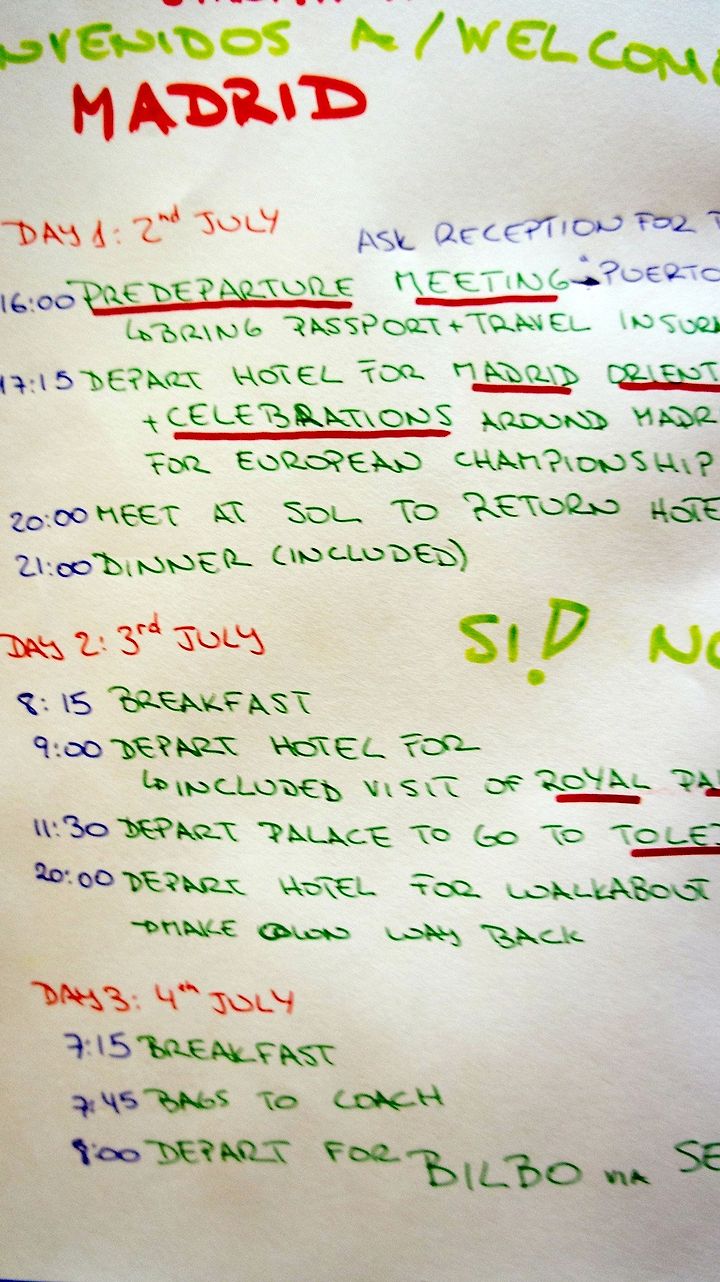 NVENIDOS A/WELCOME
MADRID
DAY 1: 2nd JULY
ASK RECEPTION FOR T
16:00 PREDEPARTURE MEETING → PUERTO
↳ BRING PASSPORT + TRAVEL INSURA
17:15 DEPART HOTEL FOR MADRID ORIENT
+ CELEBRATIONS AROUND MADR
FOR EUROPEAN CHAMPIONSHIP
20:00 MEET AT SOL TO RETURN HOTE
21:00 DINNER (INCLUDED)
DAY 2: 3rd JULY
SI! NO
8:15 BREAKFAST
9:00 DEPART HOTEL FOR
↳ INCLUDED VISIT OF ROYAL PAL
11:30 DEPART PALACE TO GO TO TOLE
20:00 DEPART HOTEL FOR WALKABOUT
→ MAKE OWN WAY BACK
DAY 3: 4th JULY
7:15 BREAKFAST
7:45 BAGS TO COACH
8:00 DEPART FOR BILBO VIA SE